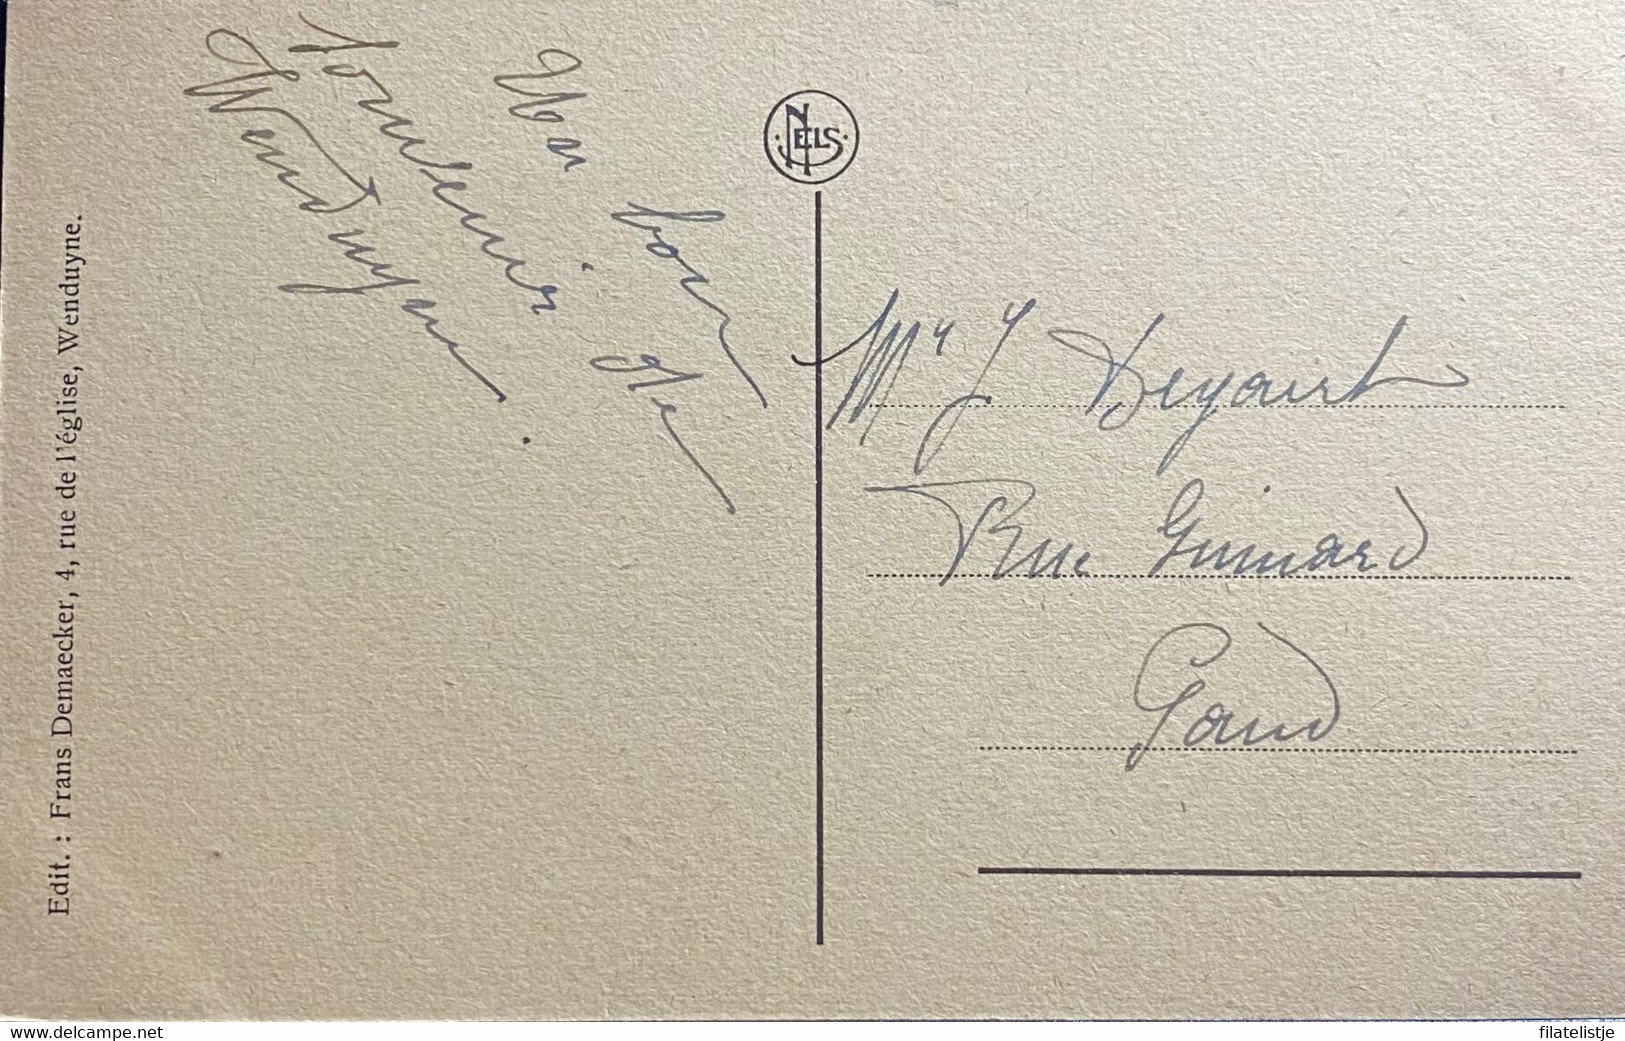 Edit. : Frans Demaecker, 4, rue de l'église, Wenduyne.
Un bon
souvenir de
Wenduyne.
NELS
Mr J
Rue Guimard
Gand
www.delcampe.net
filatelistje